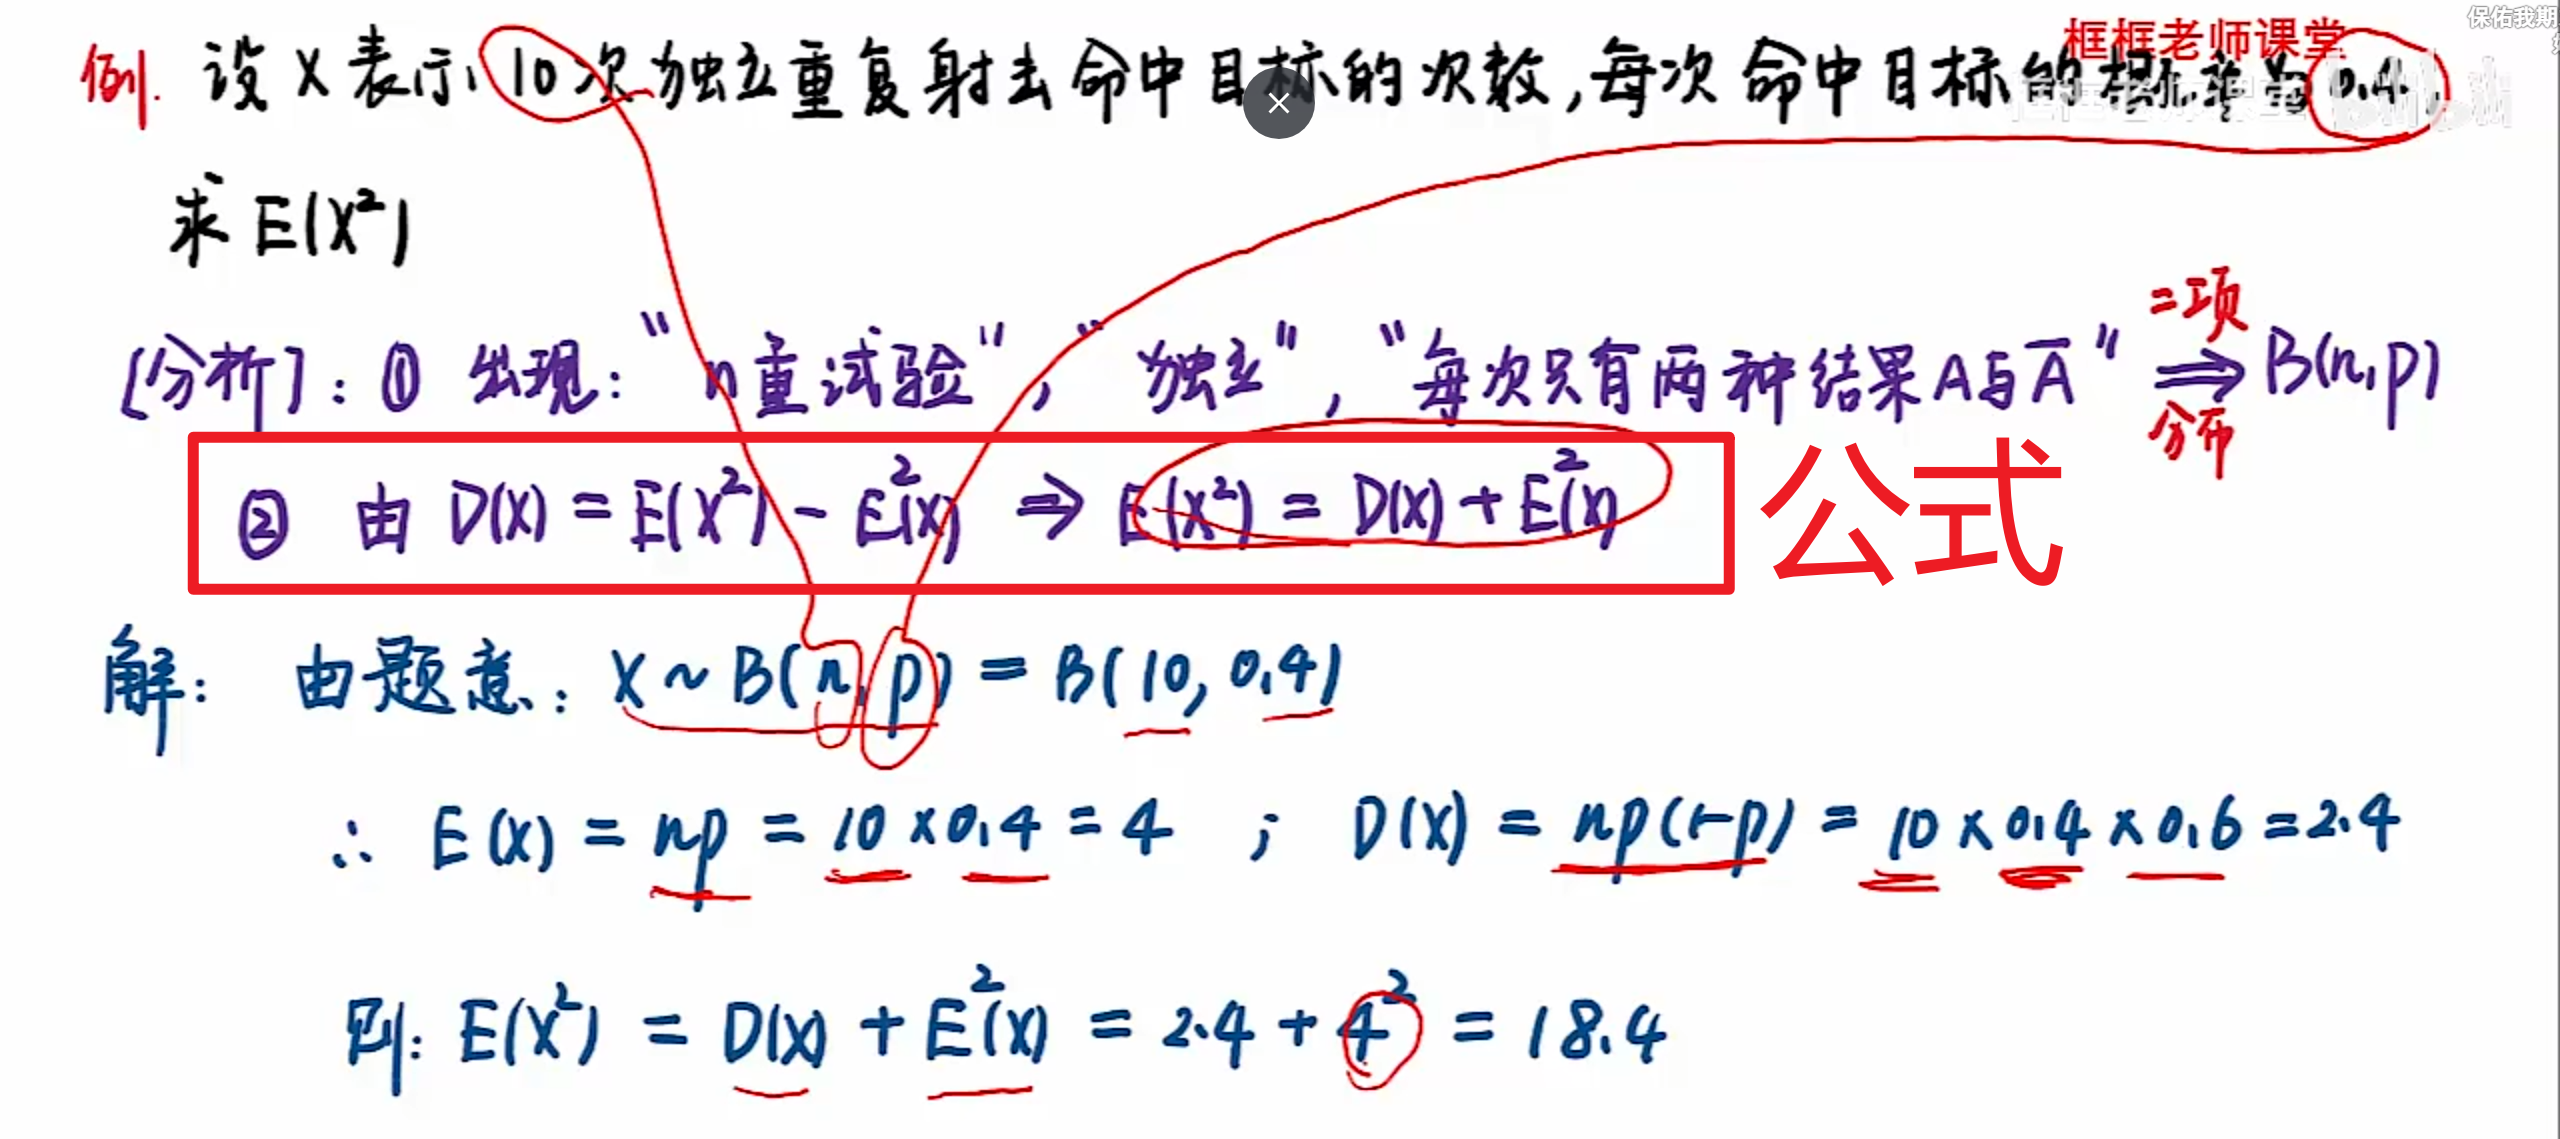 保佑我期
框框老师课堂
例. 设X表示10次独立重复射击命中目标的次数,每次命中目标的概率为0.4,
求E(X²)
[分析]: ① 出现: “n重试验”, “独立”, “每次只有两种结果A与A̅” 二项分布 ⇒ B(n,p)
② 由 D(X) = E(X²) - E²(X) ⇒ E(X²) = D(X) + E²(X)
公式
解: 由题意: X ~ B(n,p) = B(10, 0.4)
∴ E(X) = np = 10 × 0.4 = 4 ; D(X) = np(1-p) = 10 × 0.4 × 0.6 = 2.4
则: E(X²) = D(X) + E²(X) = 2.4 + 4² = 18.4